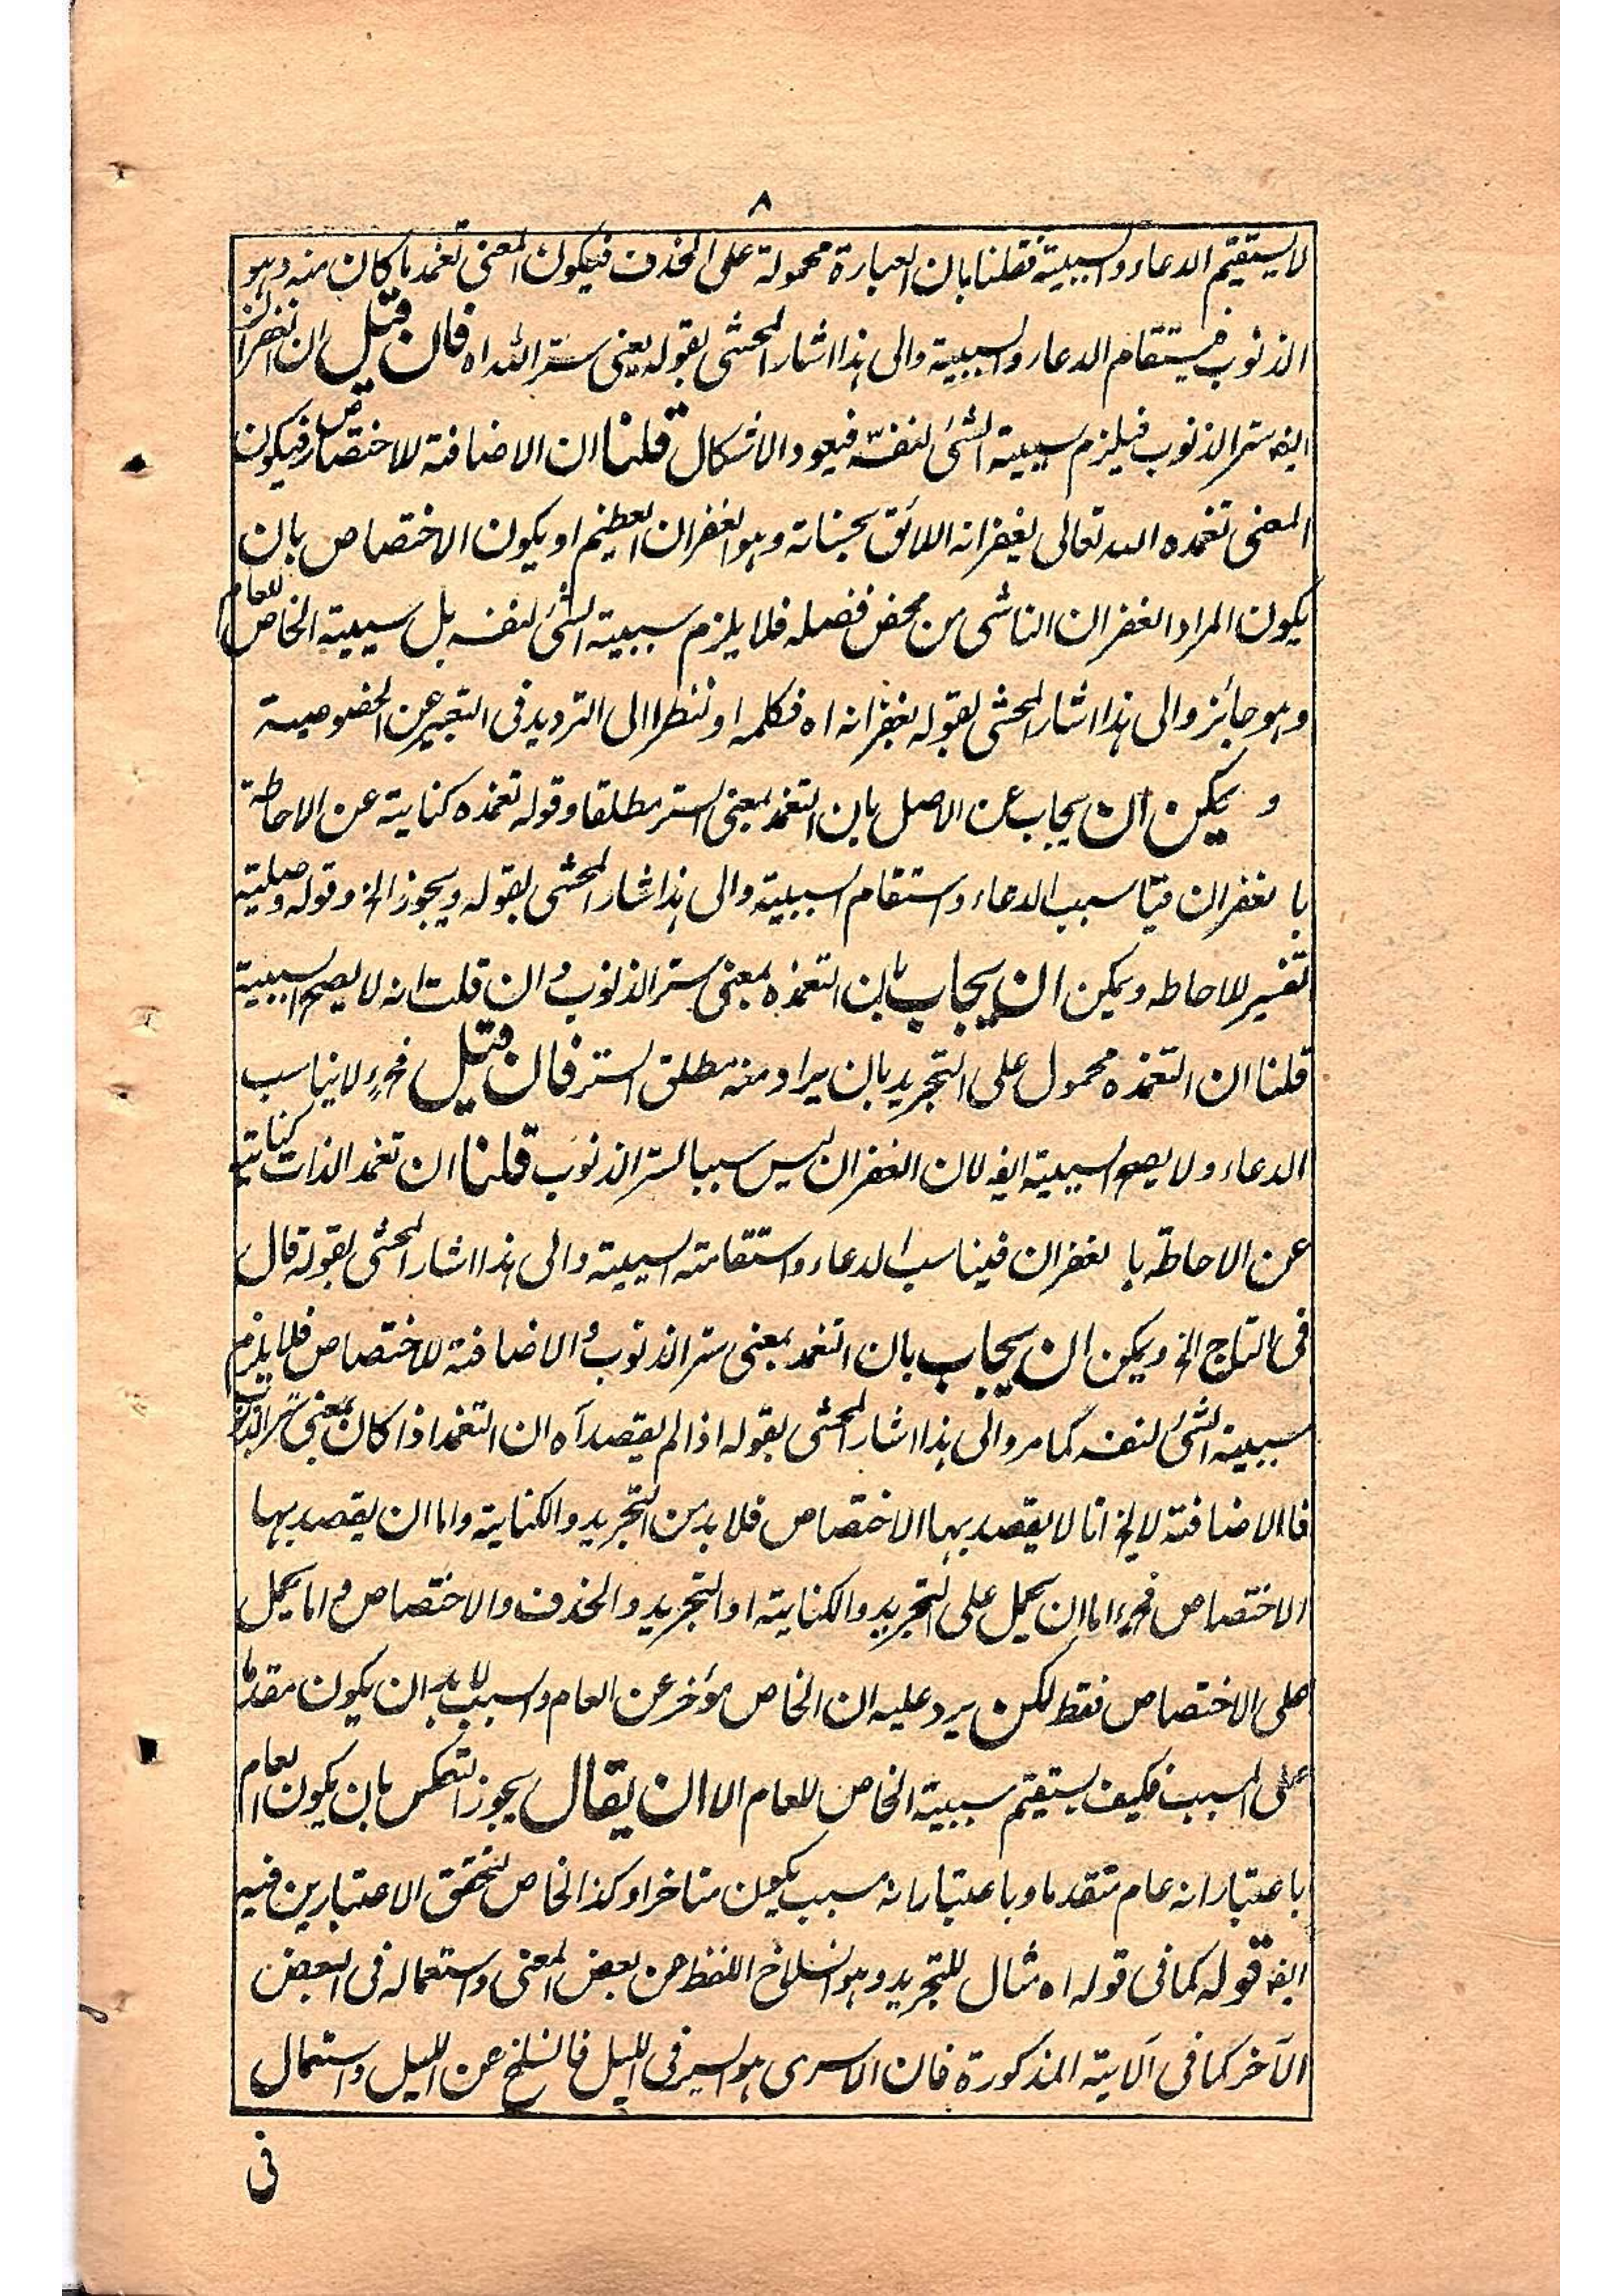 ٨
لا يستقيم الدعاء والسببية فقلنا بان العبارة محمولة على الحذف فيكون المعنى تغمد ما كان منه وهو
الذنوب فيستقام الدعاء والسببية والى هذا اشار المحشى بقوله يعنى ستر الله اه فان قيل ان الغفران
ايضا ستر الذنوب فيلزم سببية الشئ لنفسه فيعود الاشكال قلنا ان الاضافة للاختصاص فيكون
المعنى تغمده الله تعالى بغفرانه اللائق بجنابه وهو الغفران العظيم او يكون الاختصاص بان
يكون المراد الغفران الناشى من محض فضله فلا يلزم سببية الشئ لنفسه بل سببية الخاص للعام
وهو جائز والى هذا اشار المحشى بقوله بغفرانه اه فكلمه او ننظرا الى الترديد فى التعبير عن الخصوصية
و يمكن ان يجاب عن الاصل بان التغمد بمعنى الستر مطلقا وقوله تغمده كناية عن الاحاطة
با لغفران فيناسب الدعاء واستقام السببية والى هذا اشار المحشى بقوله ويجوز الخ وقوله وصليته
تفسير للاحاطه ويمكن ان يجاب بان التغمده بمعنى ستر الذنوب وان قلت انه لا يصح السببية
قلنا ان التغمده محمول على التجريد بان يراد منه مطلق الستر فان قيل فح لا يناسب
الدعاء ولا يصح السببية ايضا لان الغفران ليس سببا لستر الذنوب قلنا ان تغمد الذات كناية
عن الاحاطة با لغفران فيناسب الدعاء واستقامته السببية والى هذا اشار المحشى بقوله قال
فى التاج الخ ويمكن ان يجاب بان التغمد بمعنى ستر الذنوب والاضافة للاختصاص فلا يلزم
سببية الشئ لنفسه كما مر والى هذا اشار المحشى بقوله اذا لم يقصد آه ان التغمد اذا كان بمعنى ستر الذنوب
فالاضافة لا يخ اما لا يقصد بها الاختصاص فلا بد من التجريد والكناية واما ان يقصد بها
الاختصاص فح اما ان يحمل على التجريد والكناية او التجريد والحذف والاختصاص واما يحمل
على الاختصاص فقط لكن يرد عليه ان الخاص مؤخر عن العام والسبب لا بد ان يكون مقدما
على المسبب فكيف يستقيم سببية الخاص للعام الا ان يقال يجوز العكس بان يكون العام
باعتبار انه عام متقدما وباعتبار انه مسبب يكون متاخرا وكذا الخاص لتحقق الاعتبارين فيه
ايضا قوله كما فى قوله اه مثال للتجريد وهو انسلاخ اللفظ عن بعض المعنى واستعماله فى البعض
الآخر كما فى الآية المذكورة فان الاسرى هو السير فى الليل فانسلخ عن الليل واستعمال
فى